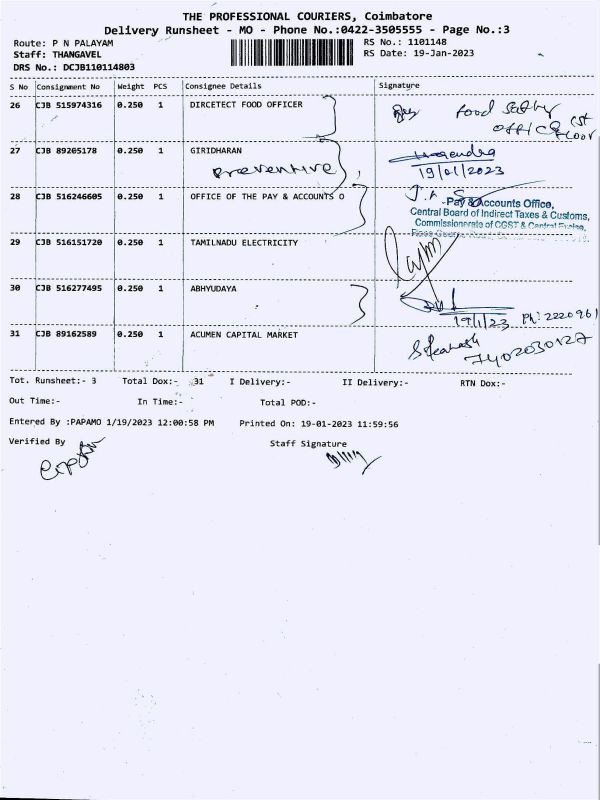 THE PROFESSIONAL COURIERS, Coimbatore
Delivery Runsheet - MO - Phone No.:0422-3505555 - Page No.:3
Route: P N PALAYAM RS No.: 1101148
Staff: THANGAVEL RS Date: 19-Jan-2023
DRS No.: DCJB110114803
S No Consignment No Weight PCS Consignee Details Signature
26 CJB 515974316 0.250 1 DIRCETECT FOOD OFFICER
food safety
office 1st floor
27 CJB 89205178 0.250 1 GIRIDHARAN
Preventive
19/01/2023
28 CJB 516246605 0.250 1 OFFICE OF THE PAY & ACCOUNTS O
Pay & Accounts Office,
Central Board of Indirect Taxes & Customs,
Commissionerate of CGST & Central Excise,
29 CJB 516151720 0.250 1 TAMILNADU ELECTRICITY
30 CJB 516277495 0.250 1 ABHYUDAYA
19/1/23 Ph: 2220961
31 CJB 89162589 0.250 1 ACUMEN CAPITAL MARKET
7402030127
Tot. Runsheet:- 3 Total Dox:- 31 I Delivery:- II Delivery:- RTN Dox:-
Out Time:- In Time:- Total POD:-
Entered By :PAPAMO 1/19/2023 12:00:58 PM Printed On: 19-01-2023 11:59:56
Verified By Staff Signature